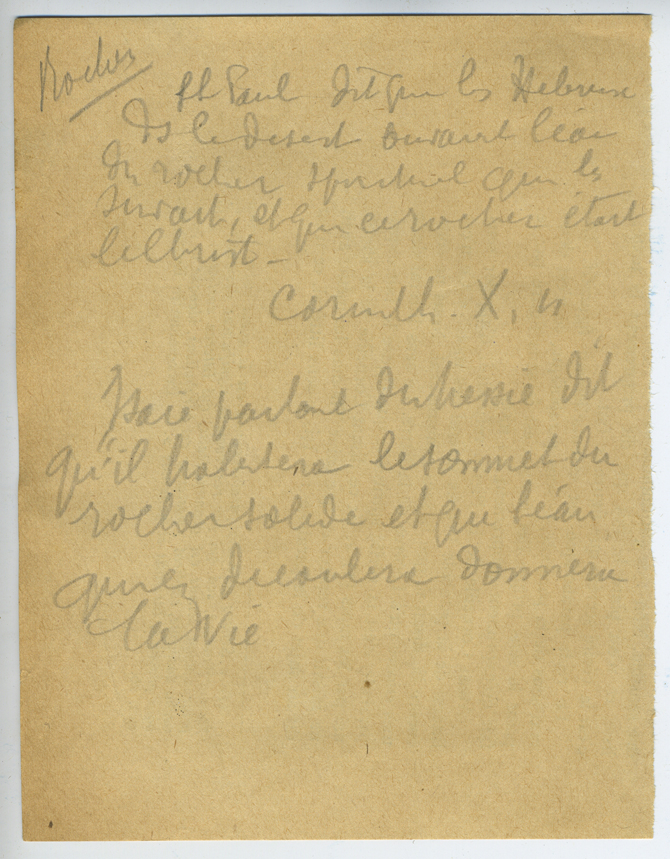 Rocher
St Paul dit que les Hébreux
ds le désert buvaient l'eau
du rocher spirituel qui les
suivait, et que ce rocher était
le Christ _
Corinth. X,
Isaïe parlant du Messie dit
qu'il habitera le sommet du
rocher solide et que l'eau
qui en découlera donnera
la Vie